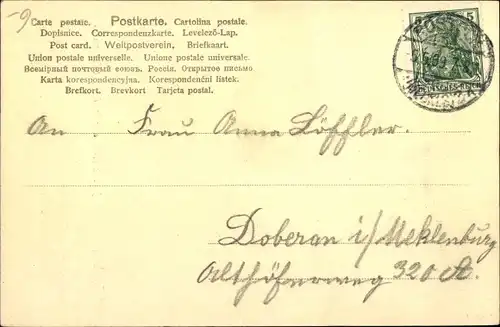 -9
Carte postale. Postkarte. Cartolina postale.
Dopisnice. Correspondenzkarte. Levelező-Lap.
Post card. Weltpostverein. Briefkaart.
Union postale universelle. Unione postale universale.
Всемірный почтовый союзъ. Россія. Открытое письмо.
Karta korespondencyjna. Korespondenční lístek.
Brefkort. Brevkort Tarjeta postal.
5 5
An Frau Anna Löffler.
Doberan i/Meklenburg
Althöferweg 320 A.